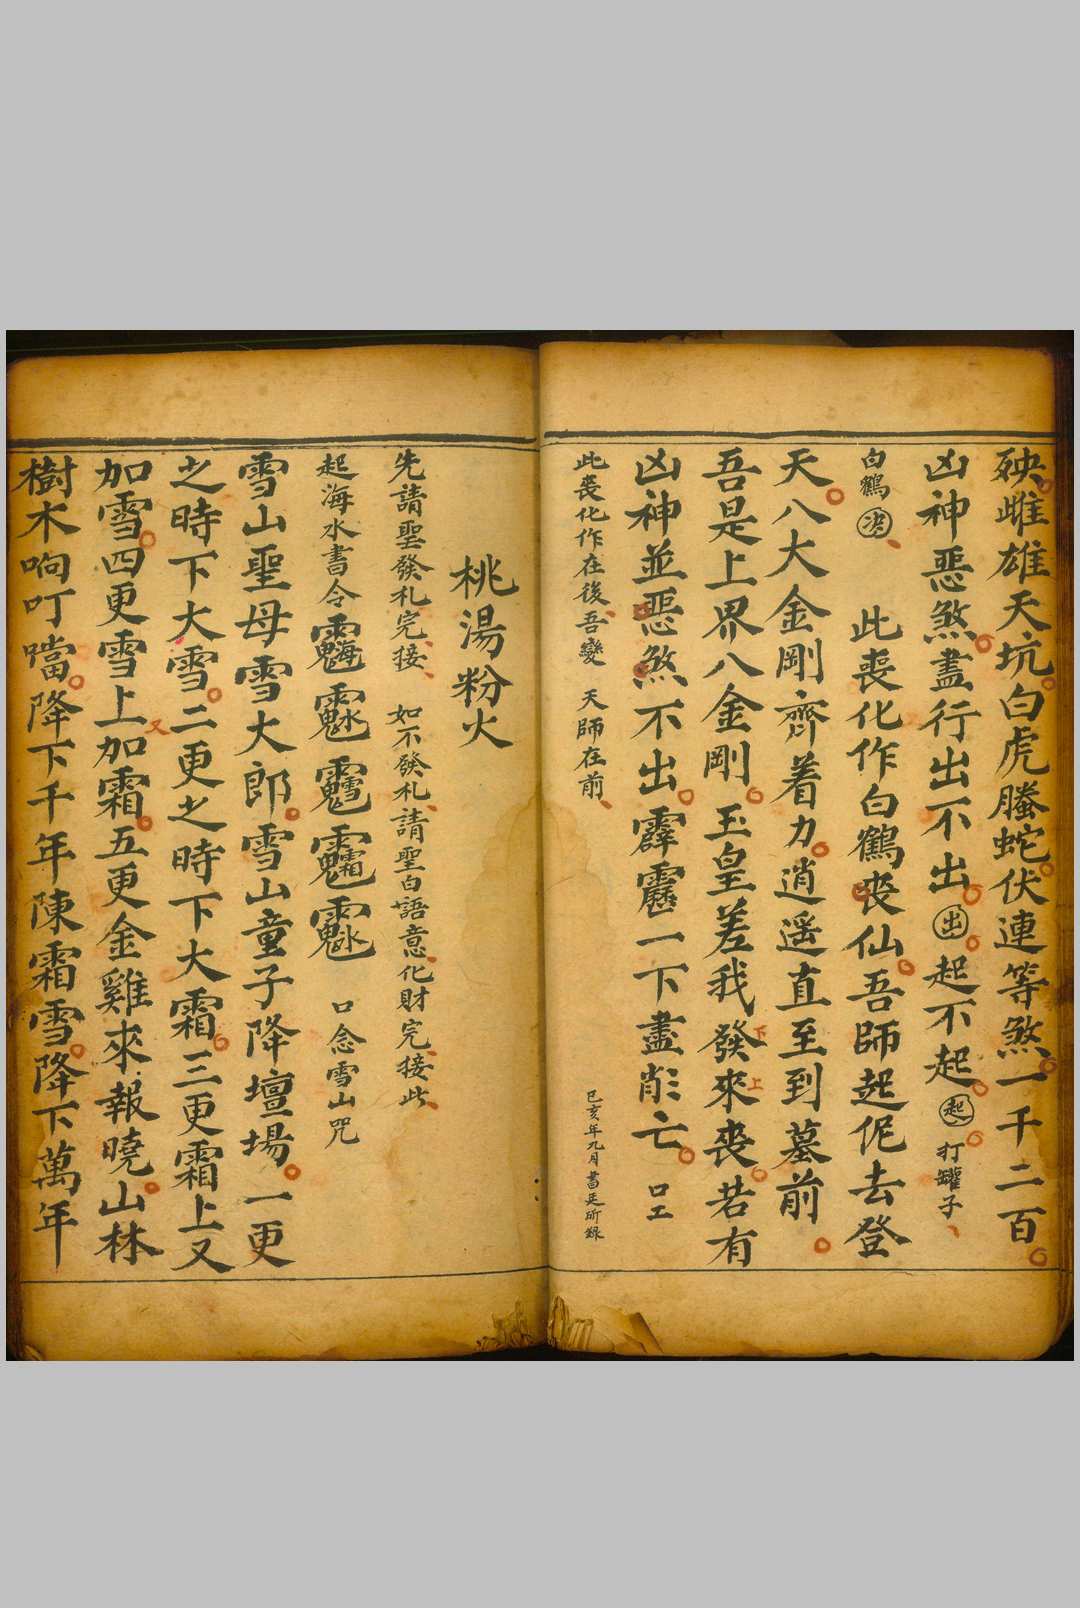 殃雌雄天坑白虎螣蛇伏連等煞一千二百
凶神惡煞盡行出不出出起不起起打罐子
白鶴 此喪化作白鶴喪仙吾師起伲去登
天八大金剛齊着力逍遥直至到墓前
吾是上界八金剛玉皇差我發下來上喪若有
凶神並惡煞不出霹靂一下盡消亡
此喪化作在後吾變 天師在前 己亥年九月
桃湯粉火
先請聖發札完接 如不發札請聖白語意化財完接此
起海水書令 口念雪山咒
雪山聖母雪大郎雪山童子降壇場一更
之時下大雪二更之時下大霜三更霜上又
加雪四更雪上又加霜五更金雞來報曉山林
樹木响叮噹降下千年陳霜雪降下萬年